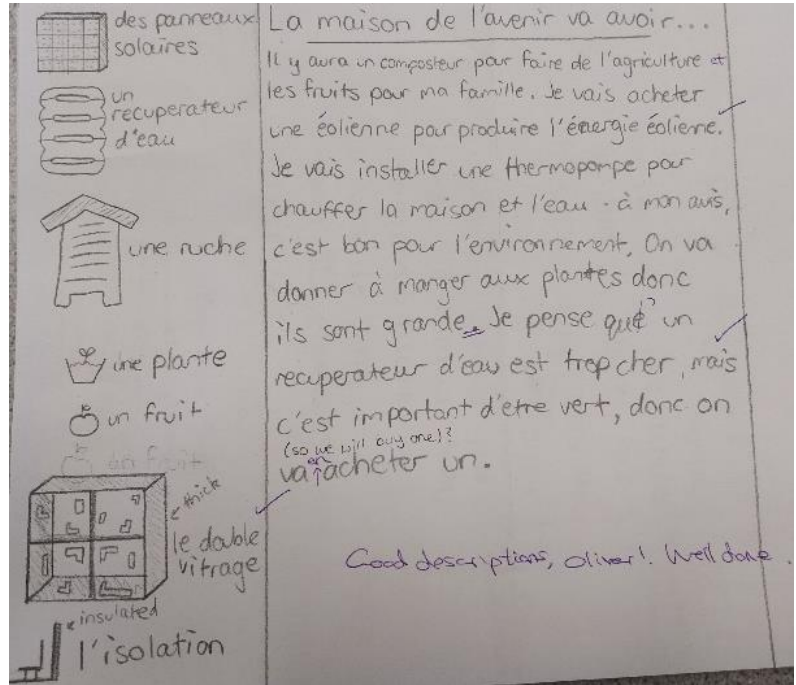 des panneaux
solaires
un
recuperateur
d'eau
une ruche
une plante
un fruit
un fruit
thick
le double
vitrage
insulated
l'isolation
La maison de l'avenir va avoir...
Il y aura un composteur pour faire de l'agriculture et
les fruits pour ma famille. Je vais acheter
une éolienne pour produire l'énergie éolienne.
Je vais installer une thermopompe pour
chauffer la maison et l'eau - à mon avis,
c'est bon pour l'environnement. On va
donner à manger aux plantes donc
ils sont grande. Je pense que un
recuperateur d'eau est trop cher, mais
c'est important d'etre vert, donc on
(so we will buy one)?
va en acheter un.
Good descriptions, Oliver! Well done.